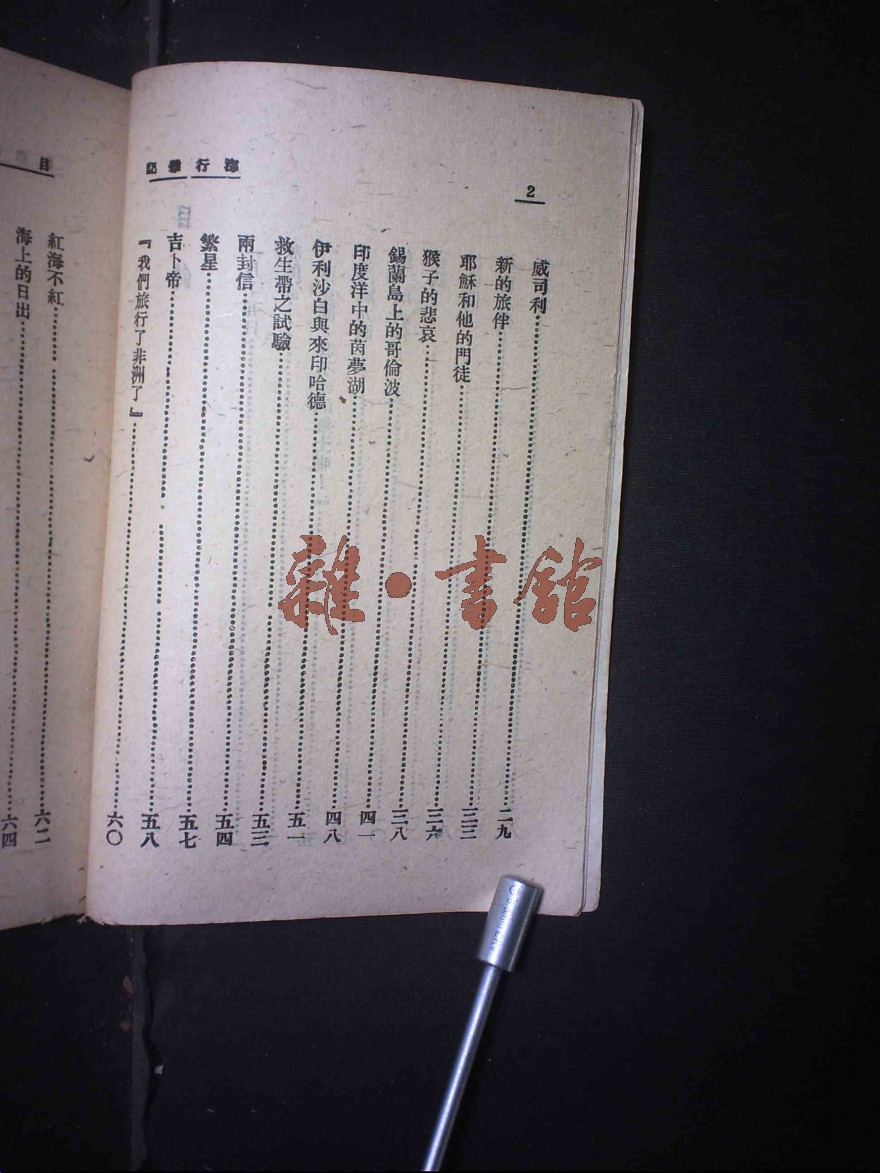 2
海行雜記
威司利……二九
新的旅伴……三三
耶穌和他的門徒……三六
猴子的悲哀……三八
錫蘭島上的哥倫波……四一
印度洋中的茵夢湖……四八
伊利沙白與來印哈德……五一
救生帶之試驗……五三
兩封信……五四
繁星……五七
吉卜帝……五八
『我們旅行了非洲了』……六〇
目
紅海不紅……六二
海上的日出……六四
雜·書館